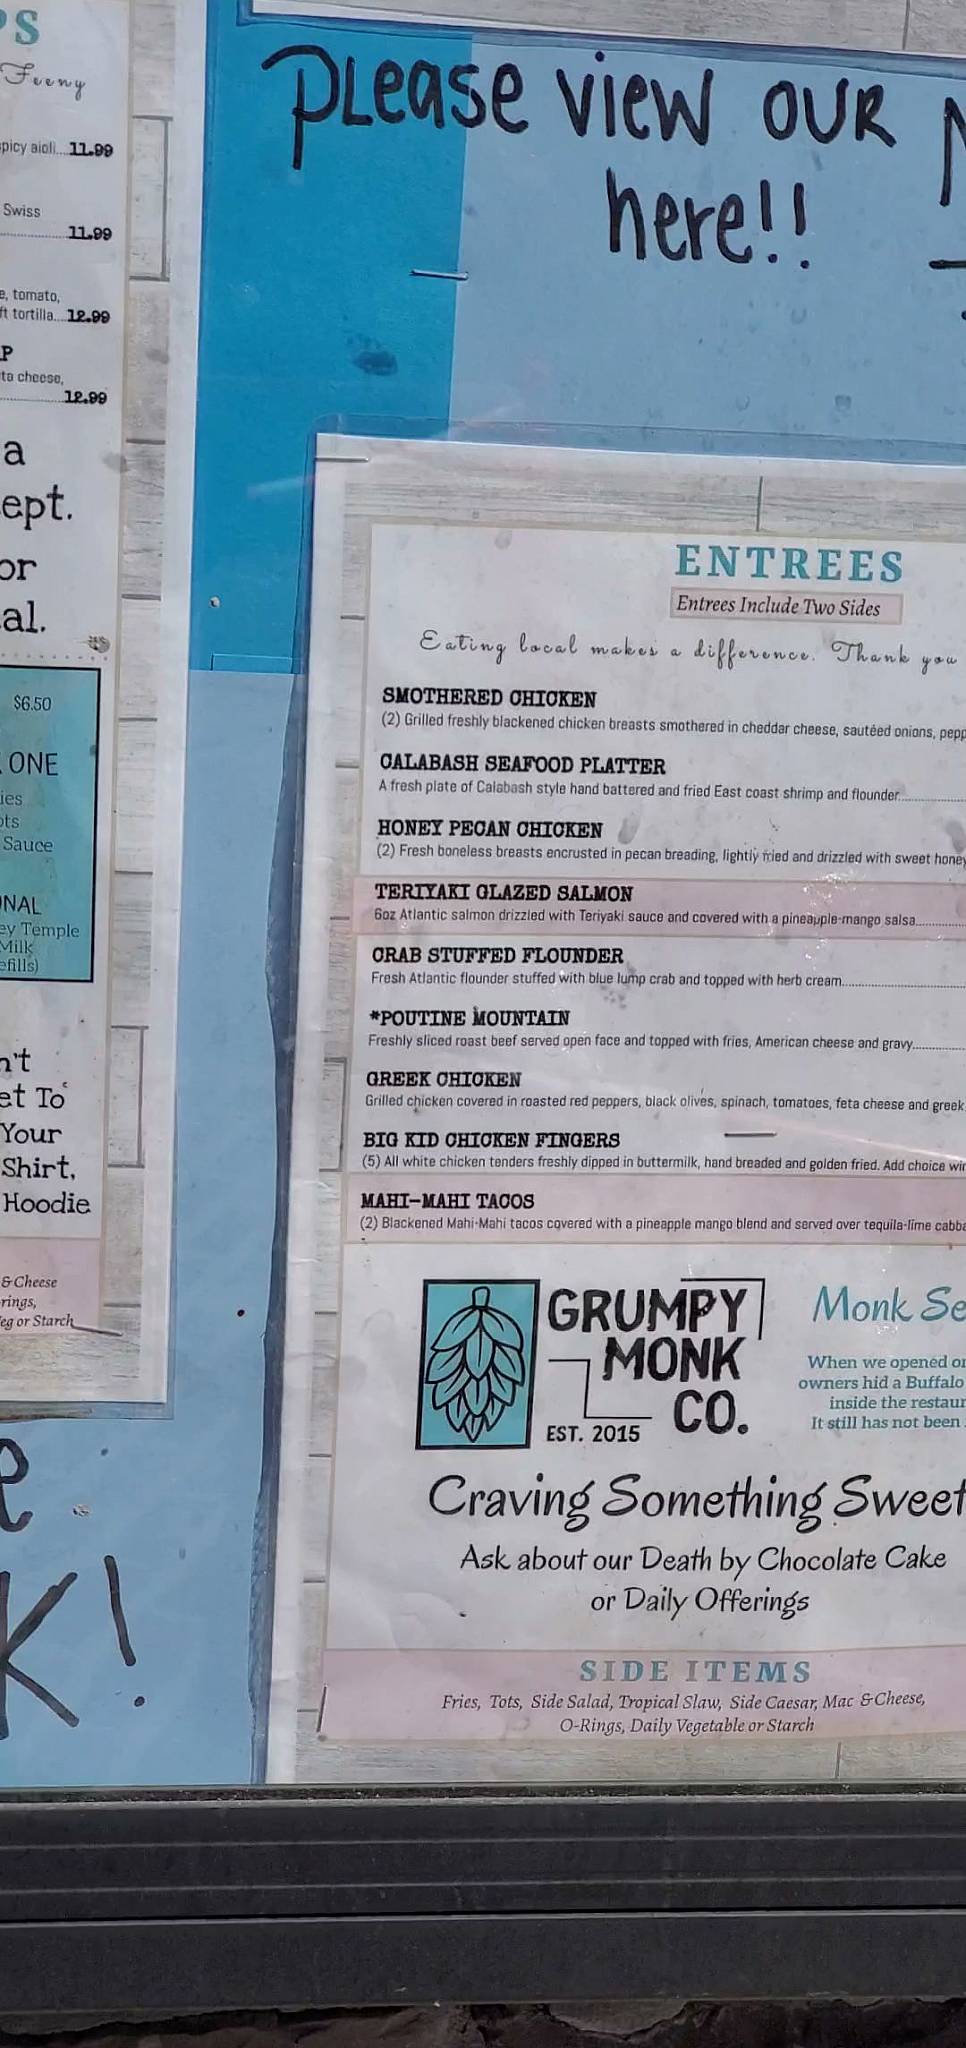 PS
Feeny
picy aioli...11.99
Swiss
11.99
e, tomato,
ft tortilla...12.99
P
ta cheese,
12.99
a
ept.
or
al.
$6.50
ONE
ies
ots
Sauce
NAL
ey Temple
Milk
efills)
n't
et To
Your
Shirt,
Hoodie
& Cheese
rings,
eg or Starch
K!
PLease view OUR
here!!
ENTREES
Entrees Include Two Sides
Eating local makes a difference. Thank you
SMOTHERED CHICKEN
(2) Grilled freshly blackened chicken breasts smothered in cheddar cheese, sautéed onions, pepp
CALABASH SEAFOOD PLATTER
A fresh plate of Calabash style hand battered and fried East coast shrimp and flounder
HONEY PECAN CHICKEN
(2) Fresh boneless breasts encrusted in pecan breading, lightly fried and drizzled with sweet honey
TERIYAKI GLAZED SALMON
6oz Atlantic salmon drizzled with Teriyaki sauce and covered with a pineapple-mango salsa
CRAB STUFFED FLOUNDER
Fresh Atlantic flounder stuffed with blue lump crab and topped with herb cream
*POUTINE MOUNTAIN
Freshly sliced roast beef served open face and topped with fries, American cheese and gravy
GREEK CHICKEN
Grilled chicken covered in roasted red peppers, black olives, spinach, tomatoes, feta cheese and greek
BIG KID CHICKEN FINGERS
(5) All white chicken tenders freshly dipped in buttermilk, hand breaded and golden fried. Add choice win
MAHI-MAHI TACOS
(2) Blackened Mahi-Mahi tacos covered with a pineapple mango blend and served over tequila-lime cabba
GRUMPY
MONK
CO.
EST. 2015
Monk Se
When we opened or
owners hid a Buffalo
inside the restaur
It still has not been
Craving Something Sweet
Ask about our Death by Chocolate Cake
or Daily Offerings
SIDE ITEMS
Fries, Tots, Side Salad, Tropical Slaw, Side Caesar, Mac & Cheese,
O-Rings, Daily Vegetable or Starch